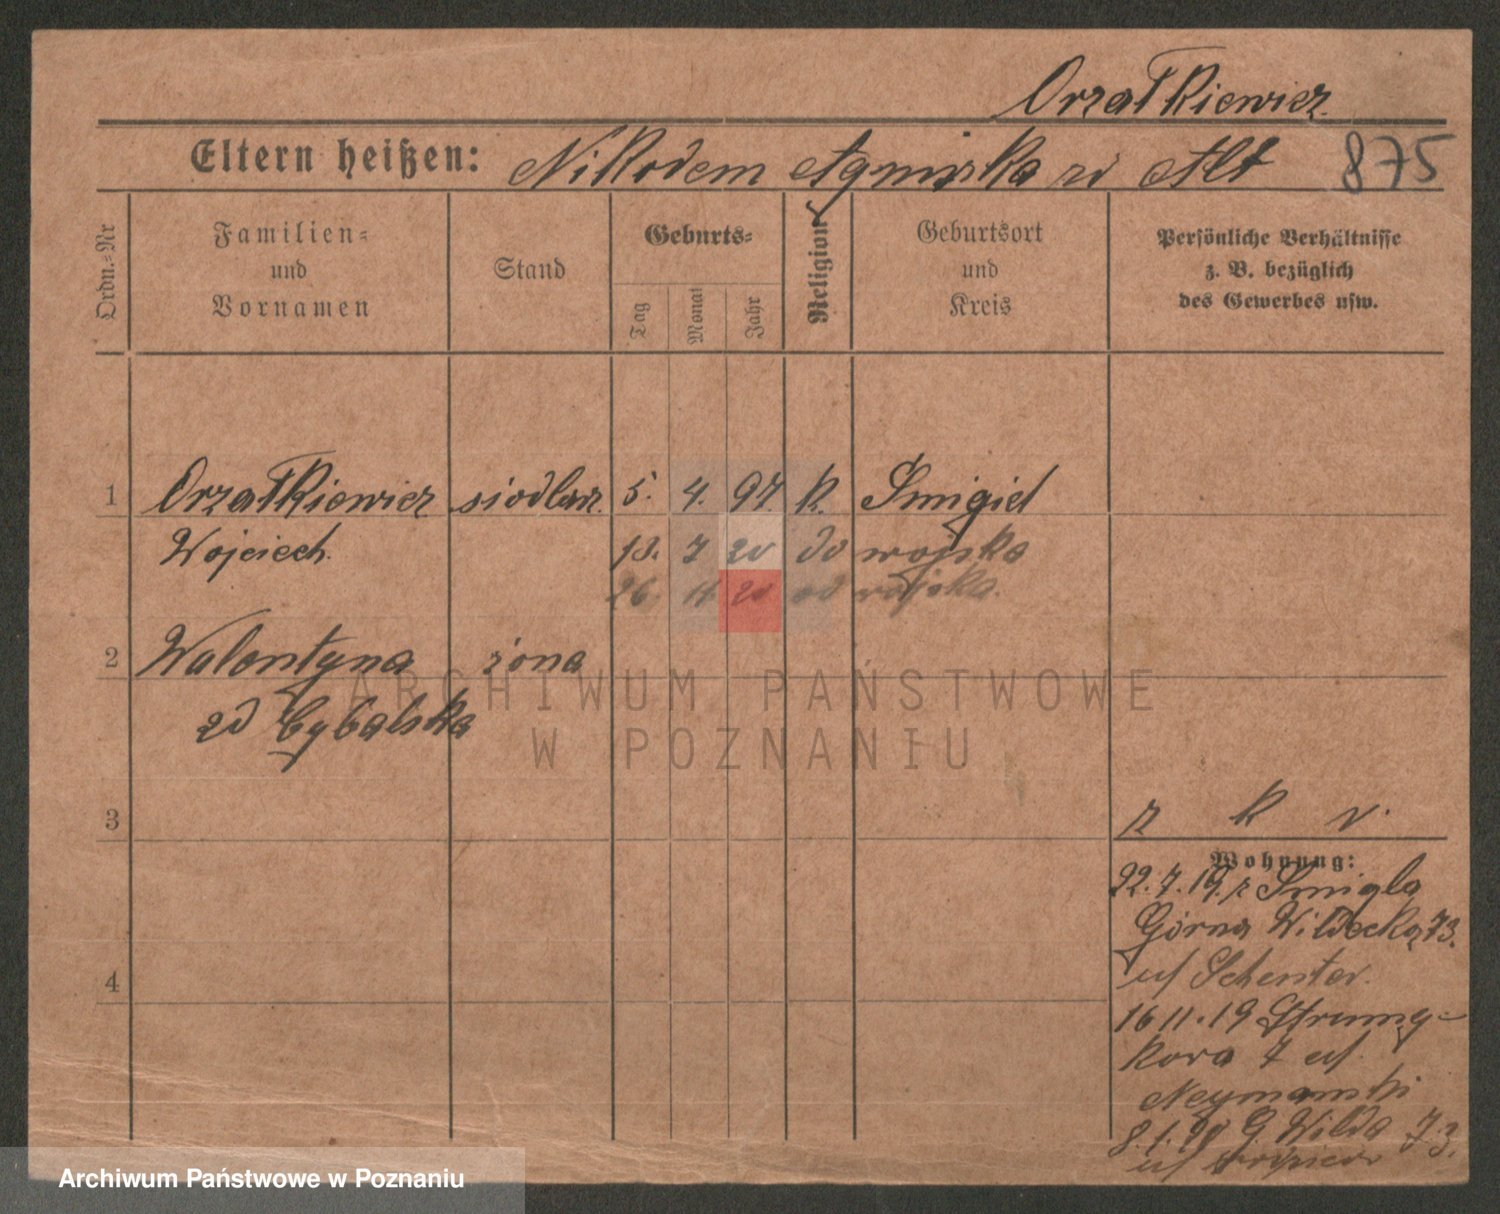 Orzałkiewicz
Eltern heißen: Nikodem Agniszka zd Alt 875
Ordn.-Nr
Familien-
und
Vornamen
Stand
Geburts-
Tag
Monat
Jahr
Religion
Geburtsort
und
Kreis
Persönliche Verhältnisse
z. B. bezüglich
des Gewerbes usw.
1 Orzałkiewicz siodlarz. 5. 4. 97. k. Śmigiel
Wojciech. 18. 7 20 do wojska
26. 11. 20 od wojska.
2 Walentyna żona
zd Cybalska
ARCHIWUM PAŃSTWOWE
W POZNANIU
3
r k v.
Wohnung:
22.7.19. z Śmigla
Górna Wildecka 73.
u/ Schenter.
4
16 11.19 Strumy-
kova 7 u/.
Neymanski
8.1.20 G. Wilda 73.
u/
Archiwum Państwowe w Poznaniu